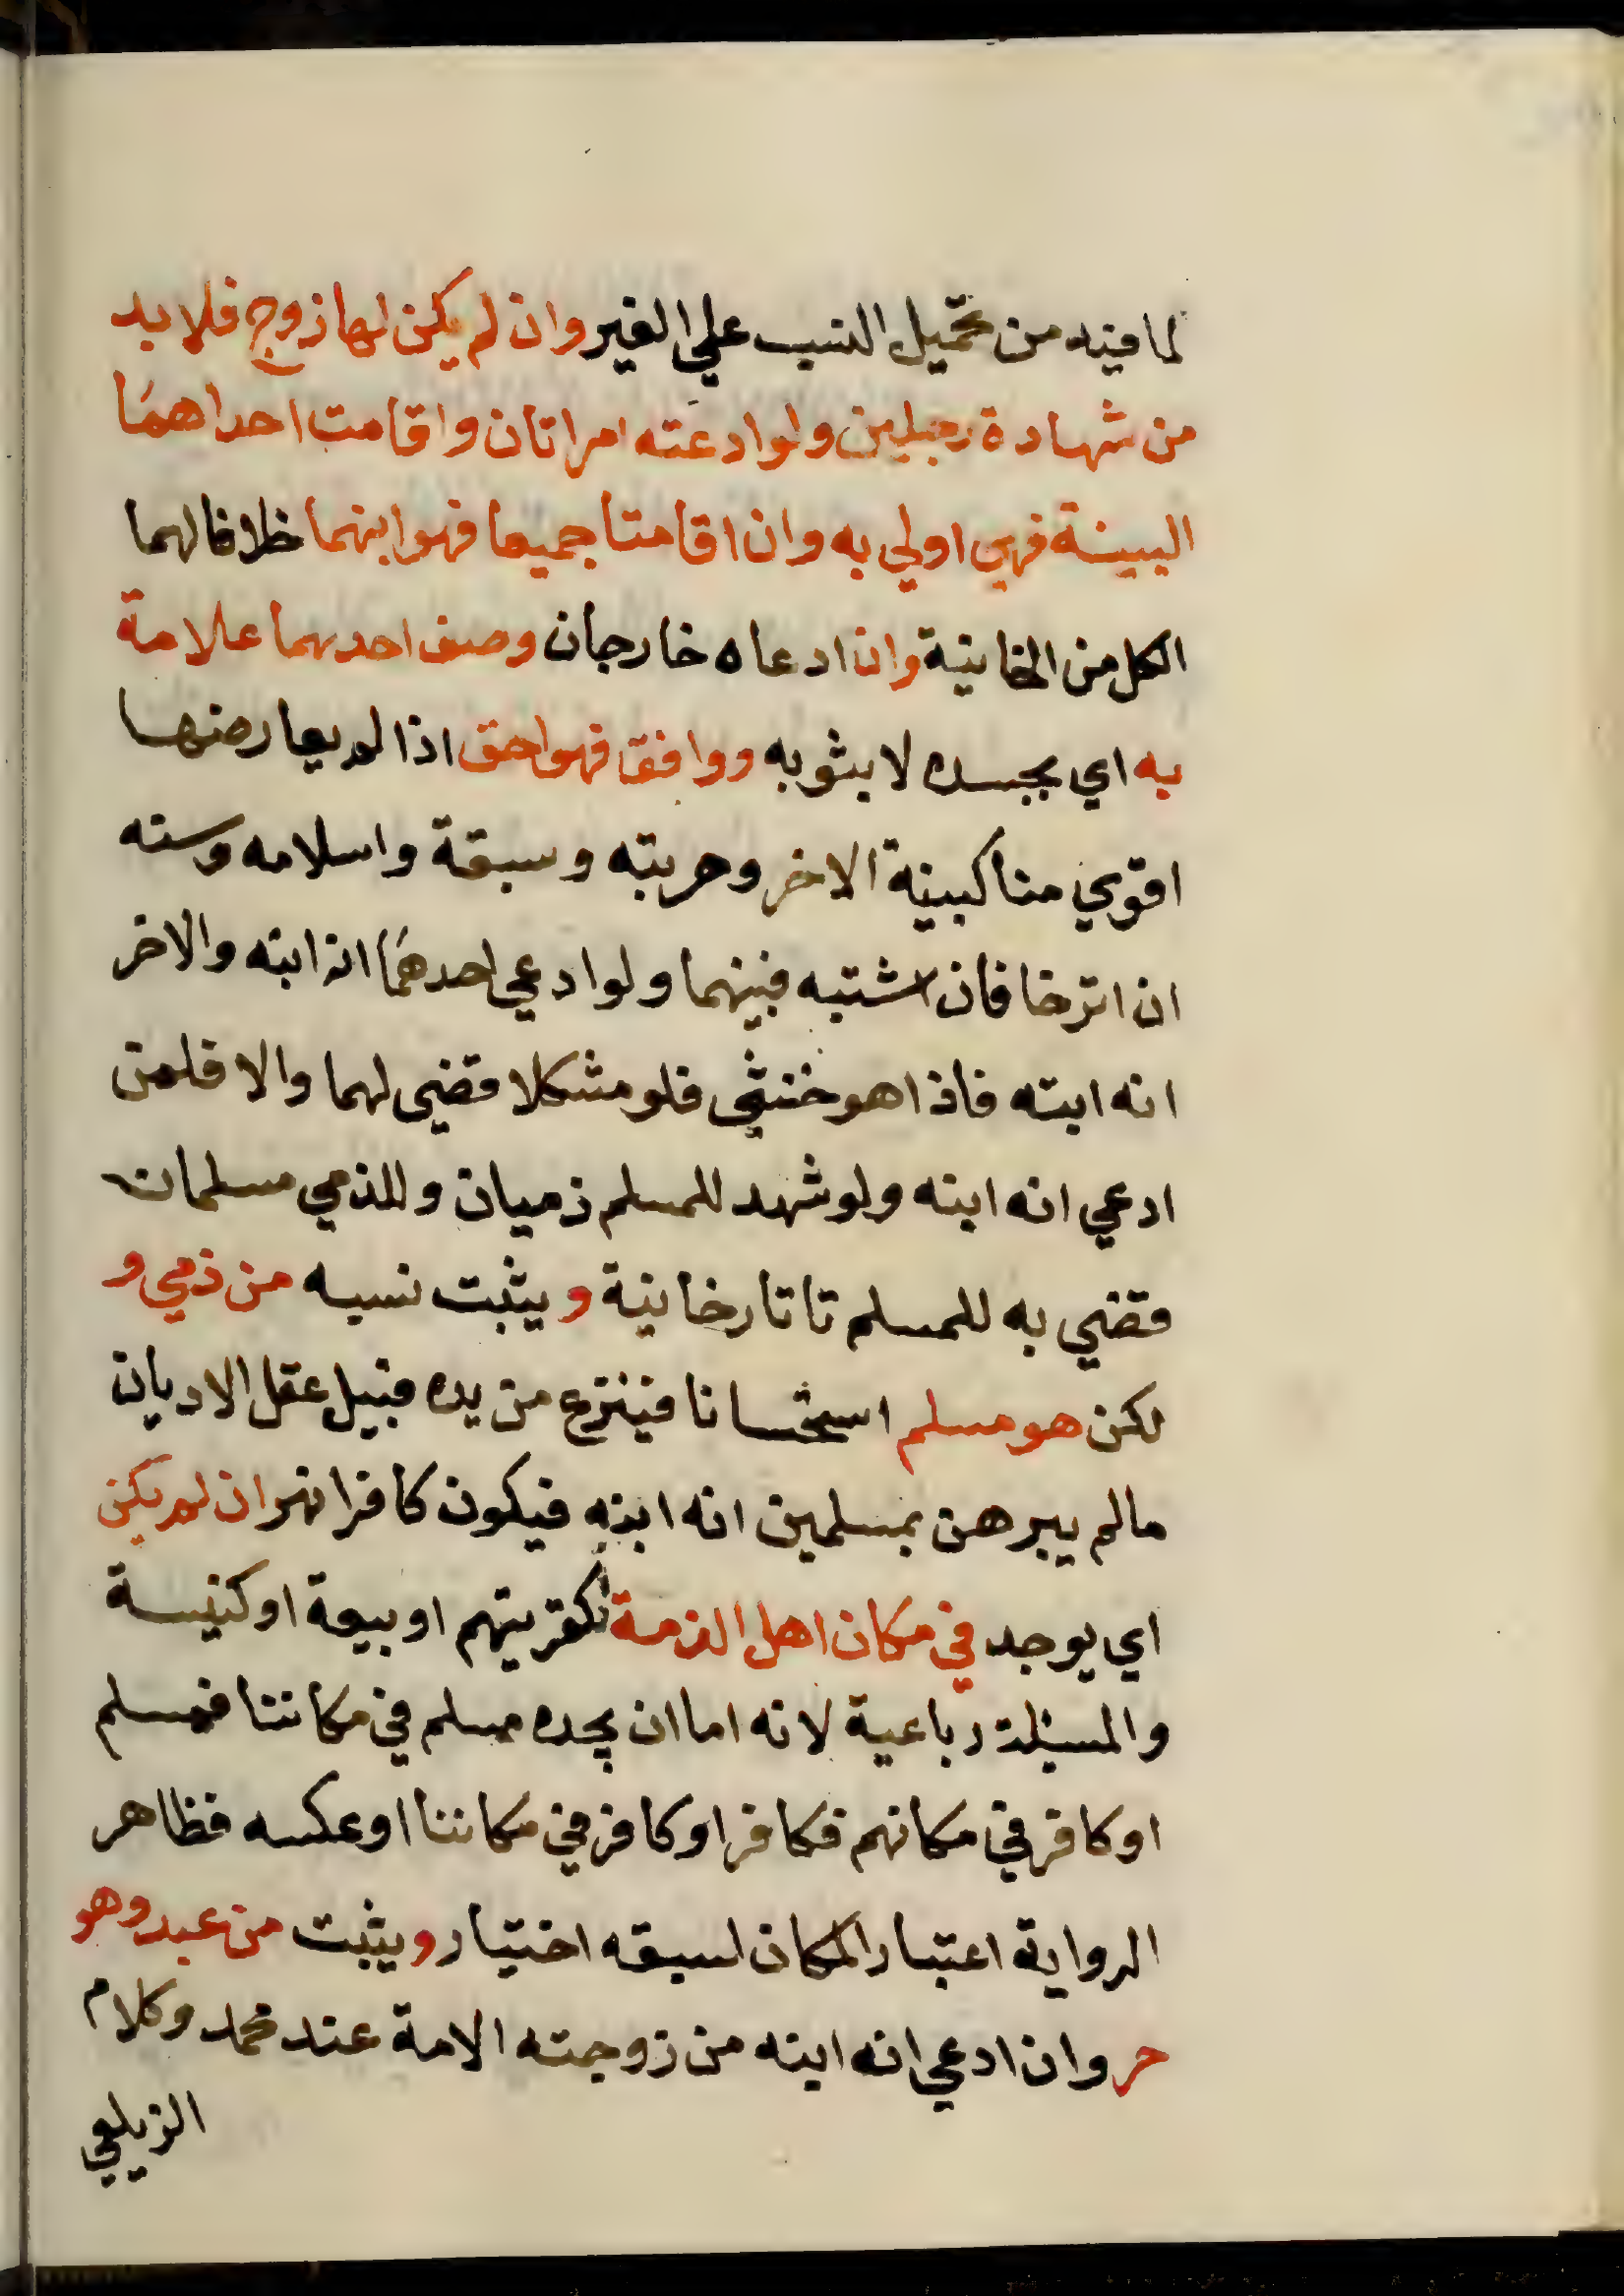 لما فيه من تحميل النسب علي الغير وان لم يكن لها زوج فلا بد
من شهادة رجلين ولو ادعته امراتان واقامت احداهما
البينة فهي اولي به وان اقامتا جميعا فهو ابنهما خلافا لهما
الكل من الخانية وان ادعاه خارجان وصف احدهما علامة
به اي بجسده لا بثوبه ووافق فهو احق اذا لم يعارضها
اقوي منها كبينة الاخر وحريته وسبقة واسلامه وسنه
ان ارخا فان اشتبه فبينهما ولو ادعي احدهما انه ابنه والاخر
انه ابنته فاذا هو خنثي فلو مشكلا قضي لهما والا فلمن
ادعي انه ابنه ولو شهد للمسلم ذميان وللذمي مسلمان
قضي به للمسلم تاتارخانية ويثبت نسبه من ذمي و
لكن هو مسلم استحسانا فينزع من يده قبيل عقل الاديان
مالم يبرهن بمسلمين انه ابنه فيكون كافرا نهر ان لم يكن
اي يوجد في مكان اهل الذمة كقريتهم او بيعة او كنيسة
والمسئلة رباعية لانه اما ان يجده مسلم في مكاننا فمسلم
او كافر في مكانهم فكافر او كافر في مكاننا او عكسه فظاهر
الرواية اعتبار المكان لسبقه اختيار ويثبت من عبد وهو
حر وان ادعي انه ابنه من زوجته الامة عند محمد وكلام
الزيلعي